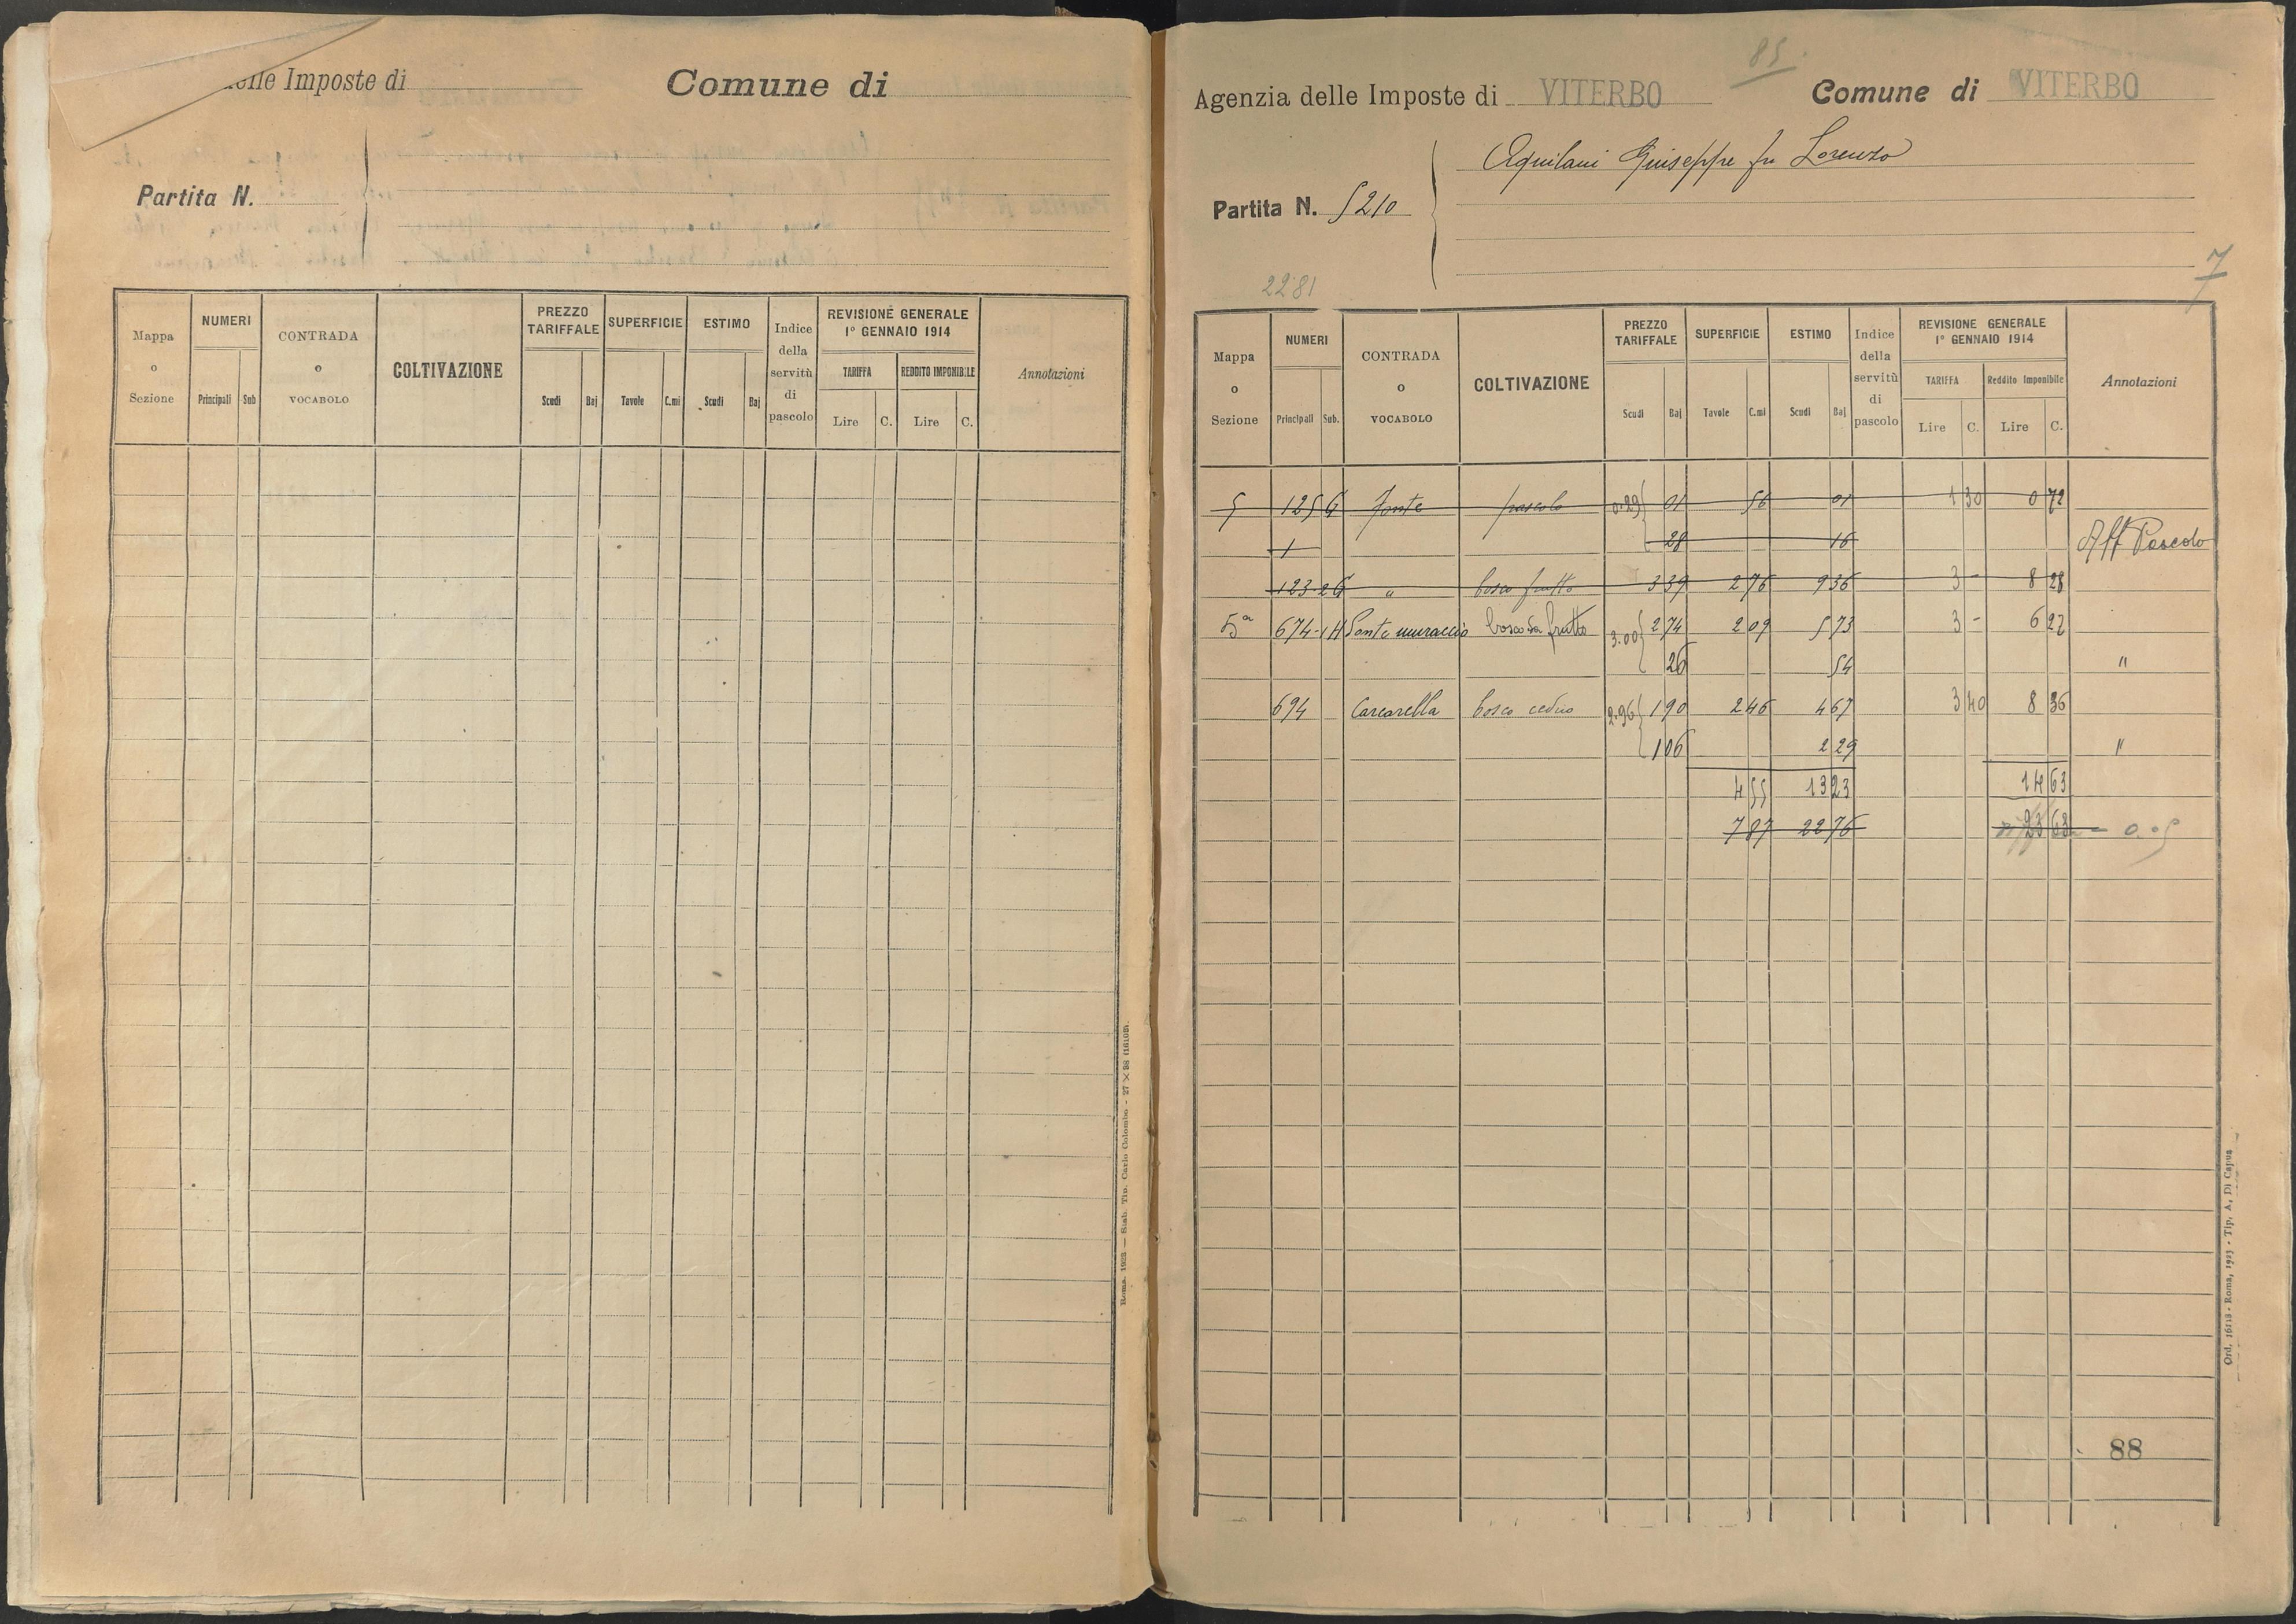 elle Imposte di
Comune di
Partita N.
Mappa o Sezione
NUMERI
Principali Sub
CONTRADA o VOCABOLO
COLTIVAZIONE
PREZZO TARIFFALE
Scudi Baj
SUPERFICIE
Tavole C.mi
ESTIMO
Scudi Baj
Indice della servitù di pascolo
REVISIONE GENERALE 1° GENNAIO 1914
TARIFFA
Lire C.
REDDITO IMPONIBILE
Lire C.
Annotazioni
Roma, 1923 — Stab. Tip. Carlo Colombo - 27 × 38
85
Agenzia delle Imposte di VITERBO
Comune di VITERBO
Aquilani Giuseppe fu Lorenzo
Partita N. 5210
7
2281
Mappa o Sezione
NUMERI
Principali Sub.
CONTRADA o VOCABOLO
COLTIVAZIONE
PREZZO TARIFFALE
Scudi Baj
SUPERFICIE
Tavole C.mi
ESTIMO
Scudi Baj
Indice della servitù di pascolo
REVISIONE GENERALE 1° GENNAIO 1914
TARIFFA
Lire C.
Reddito Imponibile
Lire C.
Annotazioni
5 125 G Fonte pascolo 0.29 01 56 01 1 30 0 72
1 28 16 Aff Pascolo
123-2 G " bosco frutto 3 39 2 76 9 36 3 - 8 28
5a 674-1 H Ponte muraccio bosco da frutto 3.00 2 74 2 09 5 73 3 - 6 27
26 54 "
694 Carcarella bosco ceduo 2.96 1 90 2 46 4 67 3 40 8 36
1 06 2 29 "
4 55 13 23 14 63
7 87 22 76 23 63 - 0.05
88
Ord. 16118 - Roma, 1923 - Tip. A. Di Capua